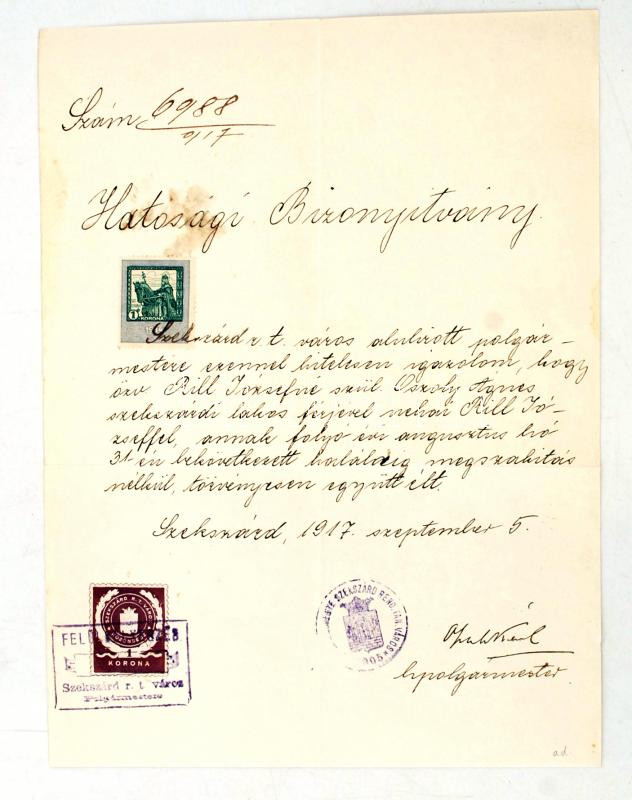 Szám 6988
917
Hatósági Bizonyitvány.
1 KORONA
Szekszárd r. t. város alulirott polgár-
mestere ezennel hitelesen igazolom, hogy
özv Rill Józsefné szül. Ágnes
szekszárdi lakos férjével néhai Rill Jó-
zseffel, annak folyó évi augusztus hó
31-én bekövetkezett haláláig megszakitás
nélkül, törvényesen együtt élt.
Szekszárd, 1917. szeptember 5.
SZEKSZÁRD R. T. VÁROS
1
KORONA
Szekszárd r. t. város
Polgármestere
SZEKSZÁRD REND. TAN. VÁROS
1905
h polgármester
a.d.